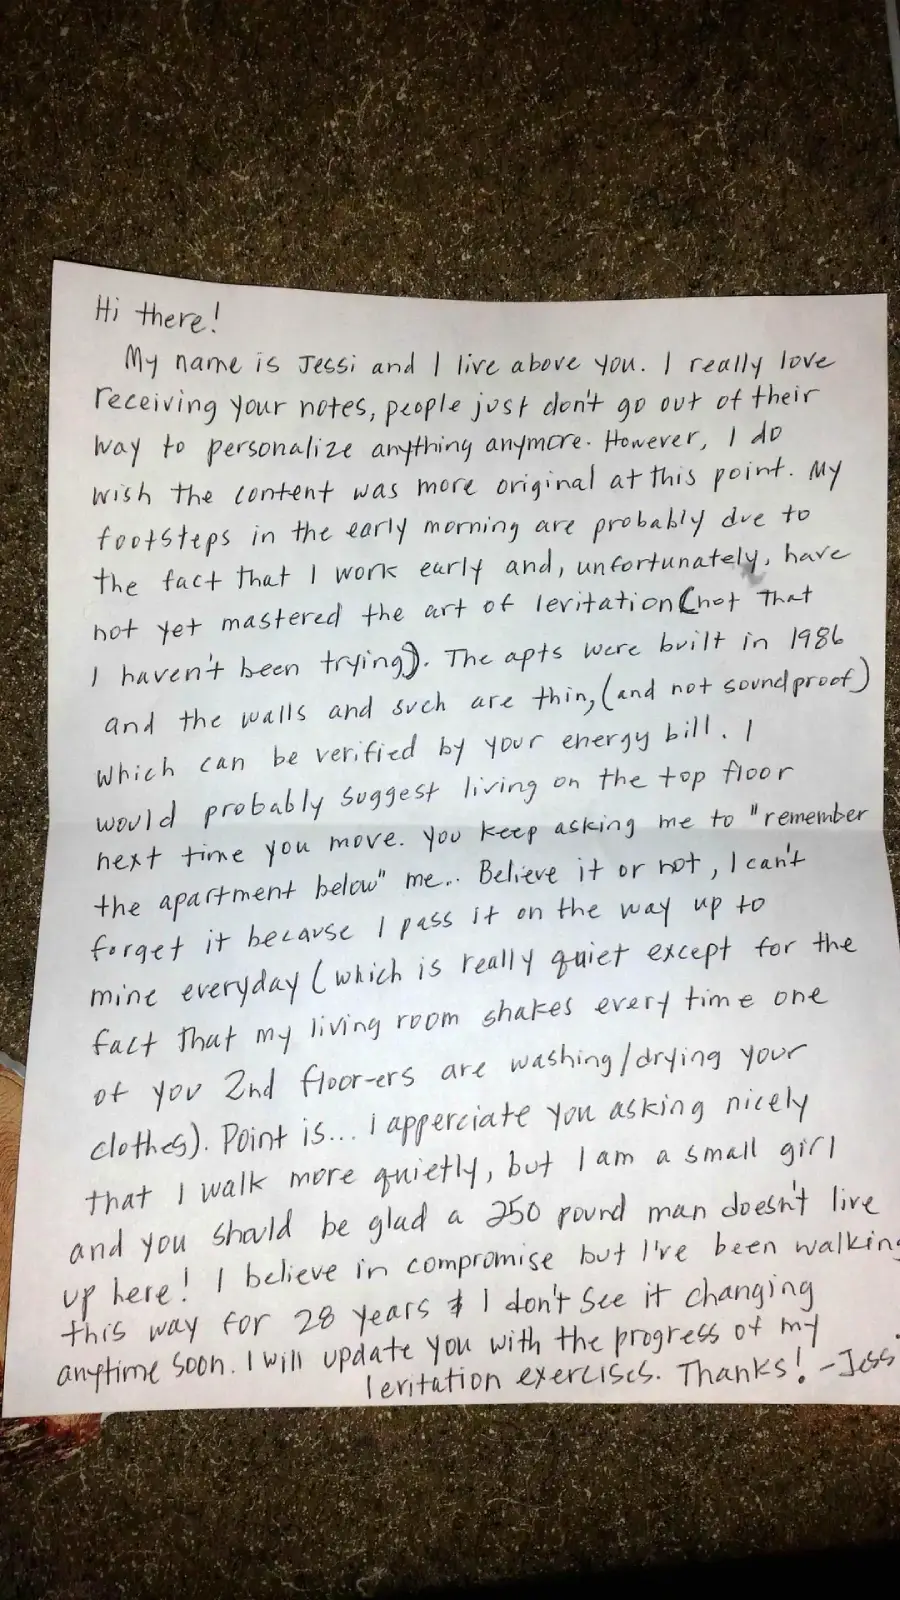 Hi there!
My name is Jessi and I live above you. I really love
receiving your notes, people just don't go out of their
way to personalize anything anymore. However, I do
wish the content was more original at this point. My
footsteps in the early morning are probably due to
the fact that I work early and, unfortunately, have
not yet mastered the art of levitation (not that
I haven't been trying). The apts were built in 1986
and the walls and such are thin, (and not soundproof)
which can be verified by your energy bill. I
would probably suggest living on the top floor
next time you move. You keep asking me to "remember
the apartment below" me... Believe it or not, I can't
forget it because I pass it on the way up to
mine everyday (which is really quiet except for the
fact that my living room shakes every time one
of you 2nd floor-ers are washing/drying your
clothes). Point is... I apperciate you asking nicely
that I walk more quietly, but I am a small girl
and you should be glad a 250 pound man doesn't live
up here! I believe in compromise but I've been walking
this way for 28 years & I don't see it changing
anytime soon. I will update you with the progress of my
levitation exercises. Thanks! -Jessi